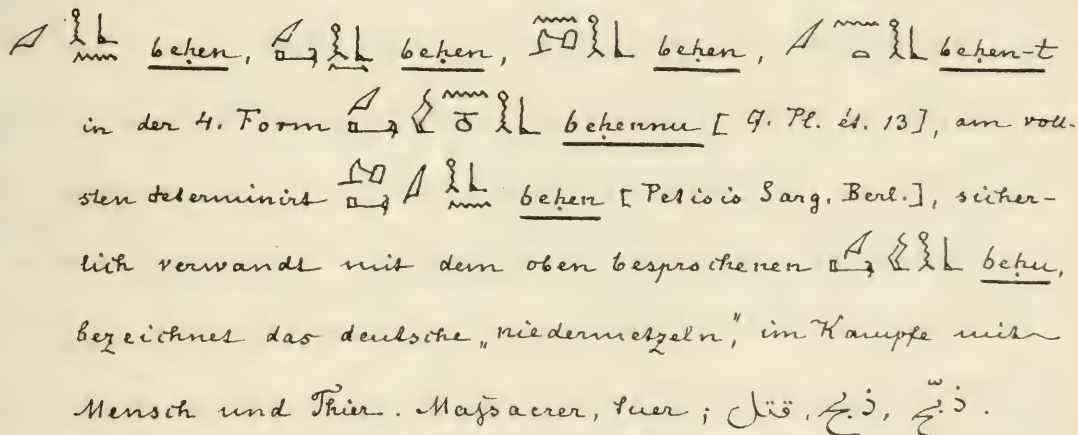 beḥen, beḥen, beḥen, beḥen-t
in der 4. Form beḥennu [ Pl. ét. 13], am voll-
sten determinirt beḥen [Petisis Sarg. Berl.], sicher-
lich verwandt mit dem oben besprochenen beḥu,
bezeichnet das deutsche „niedermetzeln", im Kampfe mit
Mensch und Thier. Maſsacrer, tuer; قتل, ذبح, ذبّح.